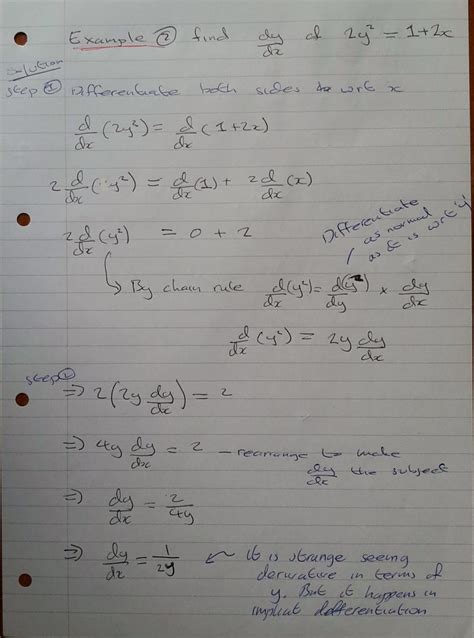 Example ② find dy/dx of 2y² = 1+2x
Solution
Step ① Differentiate both sides to wrt x
d/dx (2y²) = d/dx (1+2x)
2 d/dx (y²) = d/dx (1) + 2 d/dx (x)
2 d/dx (y²) = 0 + 2
Differentiate
as normal
as it is wrt y
↳ By chain rule d/dx (y²) = d(y²)/dy × dy/dx
d/dx (y²) = 2y dy/dx
Step ②
⇒ 2(2y dy/dx) = 2
⇒ 4y dy/dx = 2 – rearrange to make
dy/dx the subject
⇒ dy/dx = 2/4y
⇒ dy/dx = 1/2y ← It is strange seeing
derivative in terms of
y. But it happens in
implicit differentiation